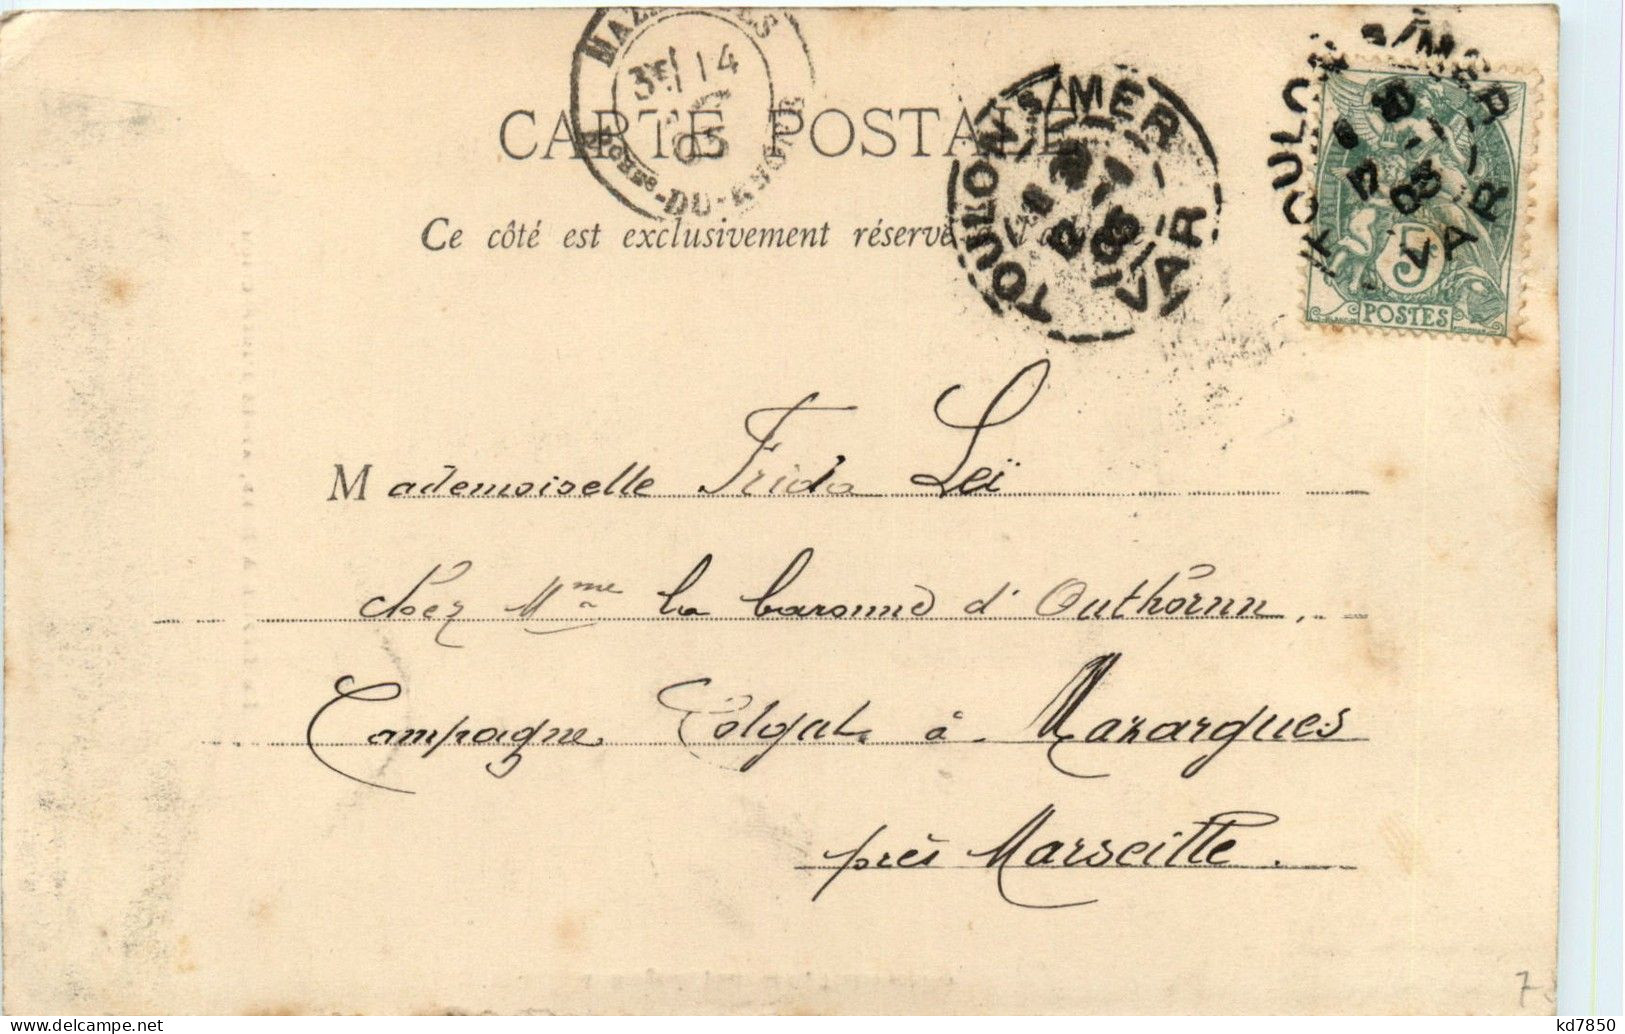 CARTE POSTALE
Ce côté est exclusivement réservé à l'adresse
MAZARGUES
14
05
BOUCHES-DU-RHÔNE
TOULON S/MER
05
VAR
TOULON S/MER
05
VAR
5
POSTES
Mademoiselle Frida Leï
chez Mme la baronne d'
Campagne à Mazargues
près Marseille.
7
kd7850